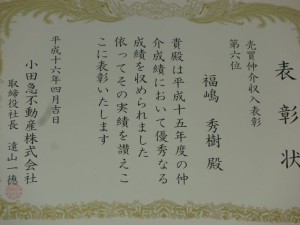 表彰状
売買仲介収入表彰
第六位
福嶋 秀樹 殿
貴殿は平成十五年度の仲
介成績において優秀なる
成績を収められました
依ってその実績を讃えこ
こに表彰いたします
平成十六年四月吉日
小田急不動産株式会社
取締役社長 遠山一徳